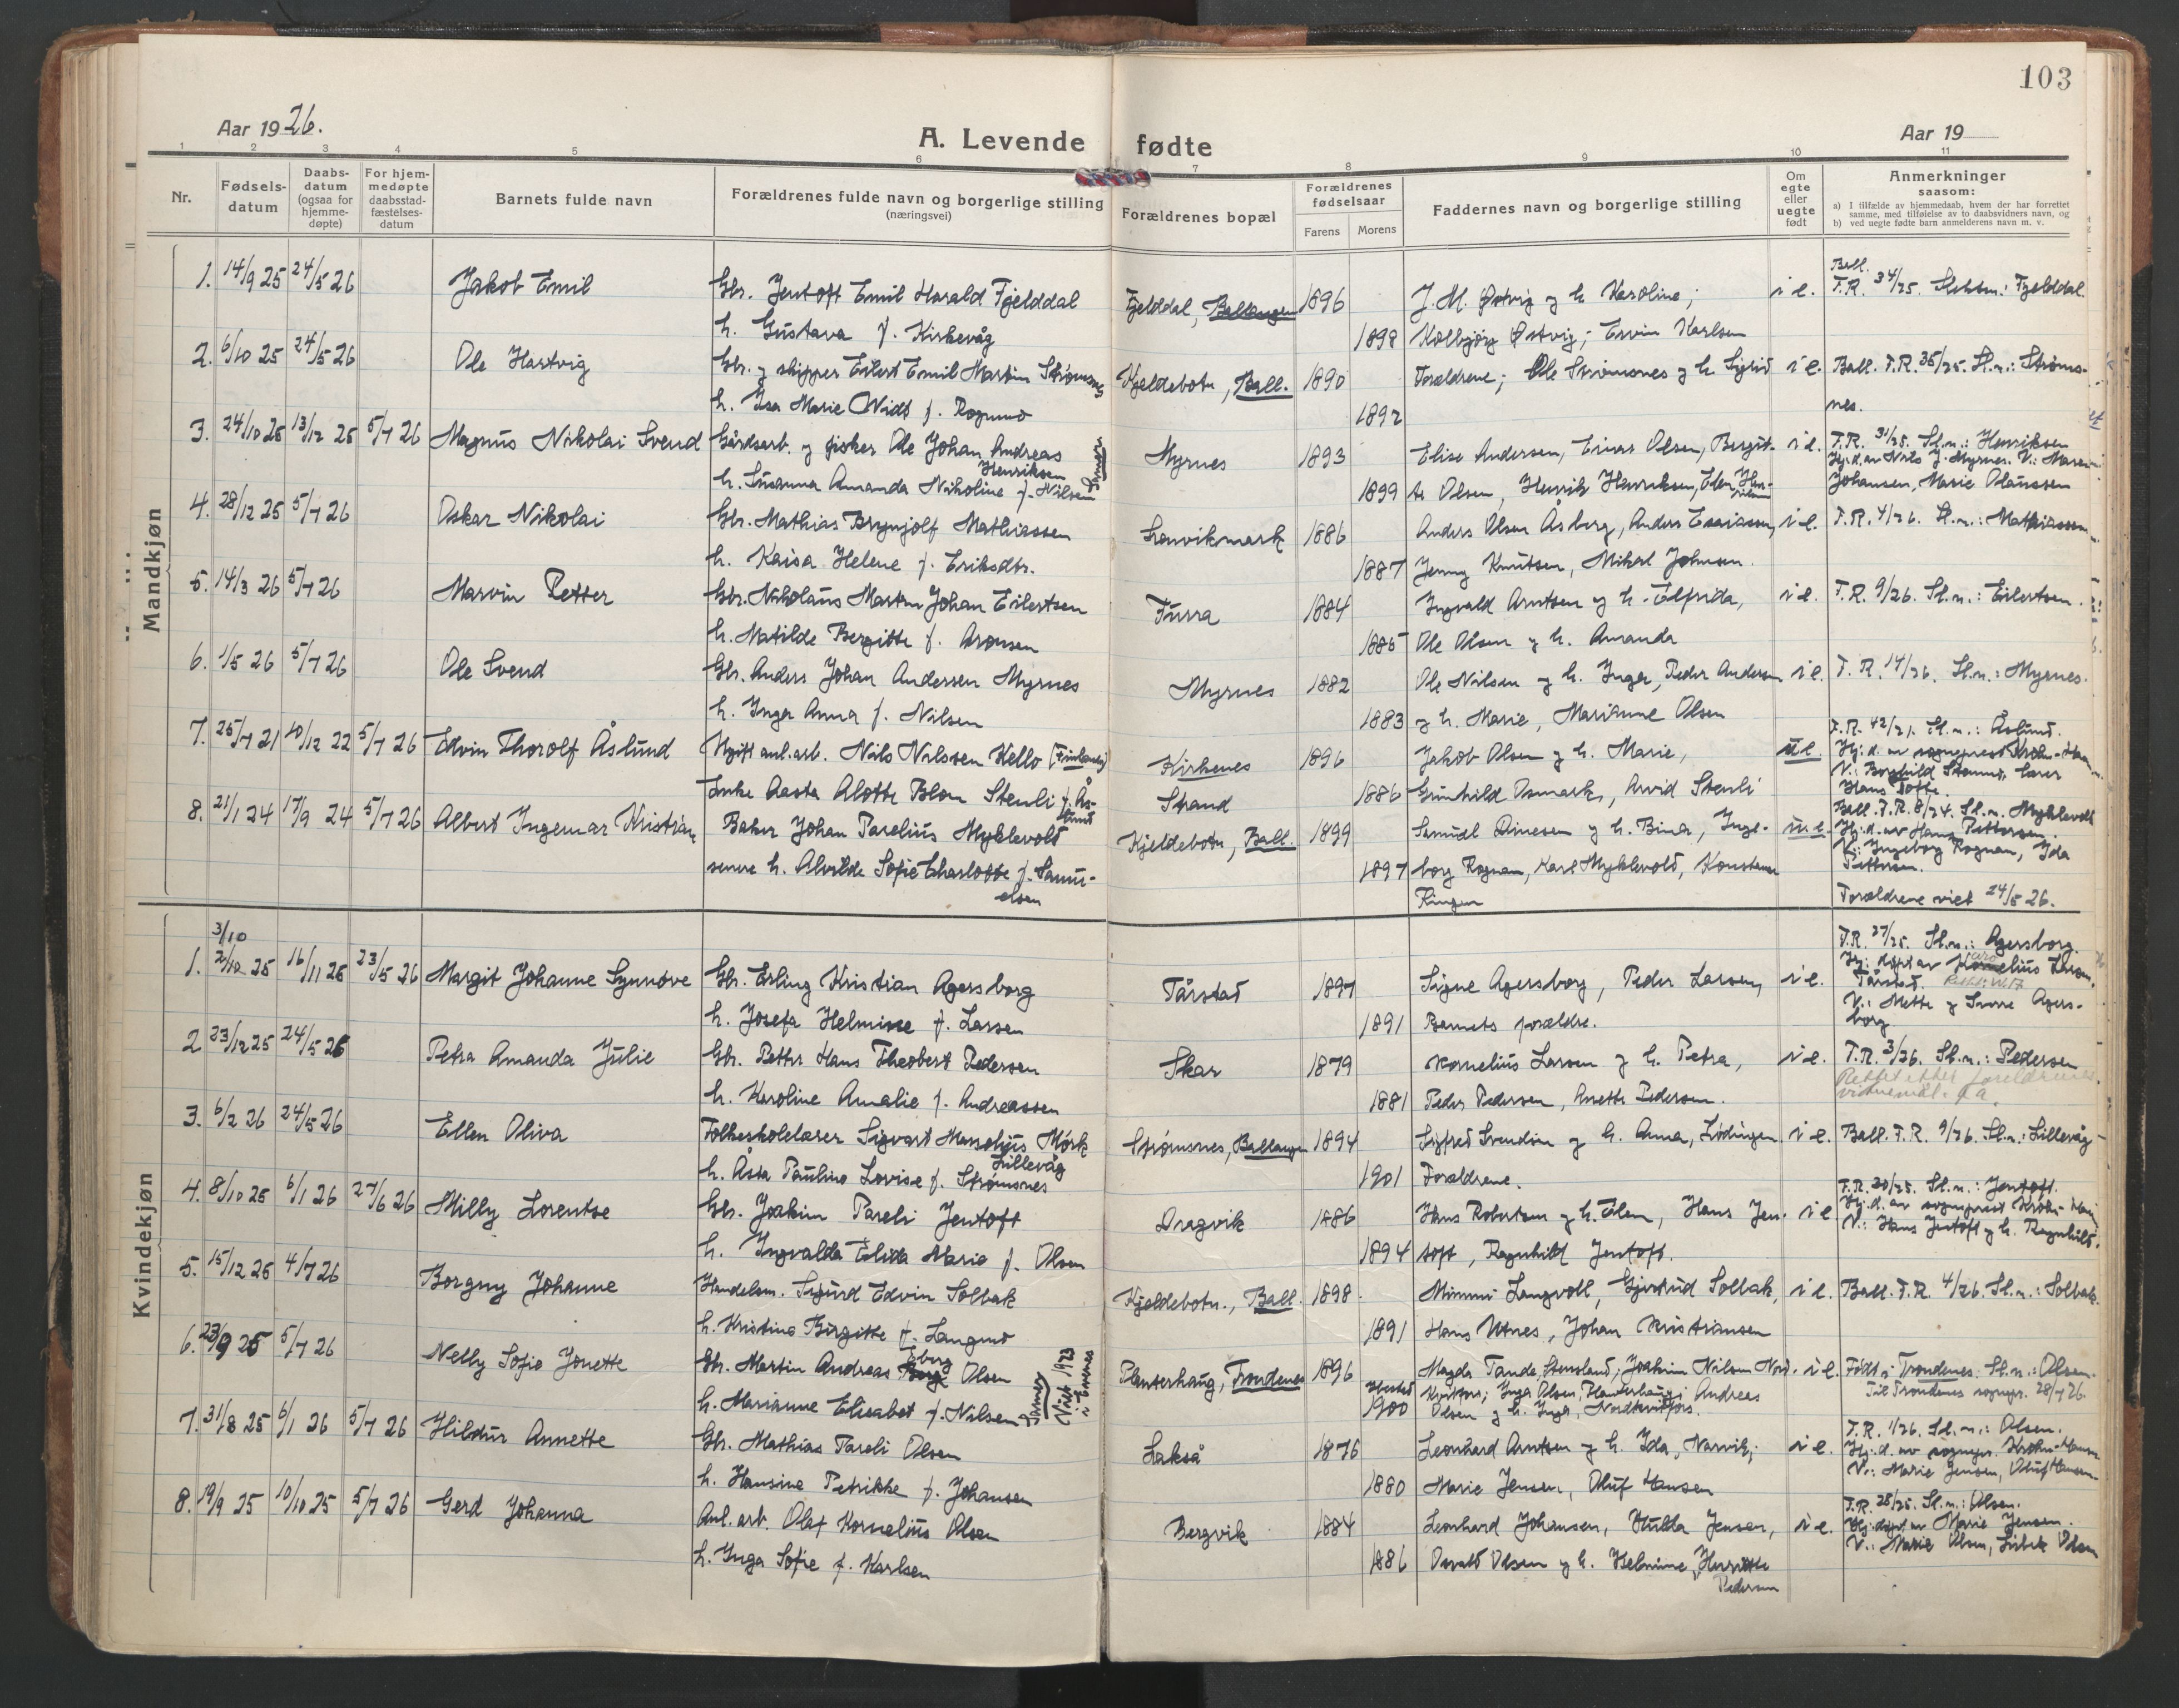 103
Aar 1926.
A. Levende fødte
Aar 19
1 2 3 4 5 6 7 8 9 10 11
Nr.
Fødsels-
datum
Daabs-
datum
(ogsaa for
hjemme-
døpte)
For hjem-
medøpte
daabsstad-
fæstelses-
datum
Barnets fulde navn
Forældrenes fulde navn og borgerlige stilling
(næringsvei)
Forældrenes bopæl
Forældrenes
fødselsaar
Farens
Morens
Faddernes navn og borgerlige stilling
Om
egte
eller
uegte
født
Anmerkninger
saasom:
a) I tilfælde av hjemmedaab, hvem der har forrettet
samme, med tilføielse av to daabsvidners navn, og
b) ved uegte fødte barn anmelderens navn m. v.
Mandkjøn
1. 14/9 25 24/5 26 Jakob Emil Gbr. Jentoft Emil Harald Fjelddal Fjelddal, Ballangen 1896 J. M. Østvig og h. Karoline; i e. Ball. F.R. 34/25. Sl.n.: Fjelddal.
h. Gustava f. Kirkevåg 1898 Kolbjørg Østvig; Ervin Karlsen
2. 6/10 25 24/5 26 Ole Hartvig Gbr. og skipper Eilert Emil Martin Strømsnes Kjeldebotn, Ball. 1890 Forældrene; Ole Strømsnes og h. Sigrid i e. Ball. F.R. 35/25. Sl.n.: Strøms-
nes.
h. Isa Marie Nids f. Rognmo 1892
3. 24/10 25 13/12 25 5/7 26 Magnus Nikolai Svend Gårdsarb. og fisker Ole Johan Andreas Henriksen Samer Myrnes 1893 Elise Andersen, Einar Olsen, Bergit- i e. F.R. 31/25. Sl.n.: Henriksen
Hj.d. av Nils J. Myrnes. V.: Maren
Johansen, Marie Olaussen
h. Susanna Amanda Nikoline f. Nilsen 1899 te Olsen, Henrik Henriksen, Ellen Hen-
riksen
4. 28/12 25 5/7 26 Oskar Nikolai Gbr. Mathias Brynjolf Mathiassen Lenvikmark 1886 Anders Olsen Åsberg, Anders Esaiassen, i e. F.R. 4/26. Sl.n.: Mathiassen
h. Kaisa Helene f. Eriksdtr. 1887 Jenny Knutsen, Mikael Johnsen.
5. 14/3 26 5/7 26 Marvin Petter Gbr. Nikolaus Martin Johan Eilertsen Furra 1884 Ingvald Arntsen og h. Elfrida, i e. F.R. 9/26. Sl.n.: Eilertsen.
h. Matilde Bergitte f. Aronsen 1885 Ole Olsen og h. Amanda
6. 1/5 26 5/7 26 Ole Svend Gbr. Anders Johan Andersen Myrnes Myrnes 1882 Ole Nilsen og h. Inger, Peder Andersen i e. F.R. 14/26. Sl.n.: Myrnes.
h. Inger Anna f. Nilsen 1883 og h. Marie, Marianne Olsen
7. 25/7 21 10/12 22 5/7 26 Edvin Thorolf Åslund Ugift anl.arb. Nils Nilssen Kello (Finlandsk) Kirkenes 1896 Jakob Olsen og h. Marie, u e. F.R. 42/21. Sl.n.: Åslund.
Hj.d. av sogneprest Krohn-Hansen
V.: Borghild Strand, lærer
Hans Tofte.
Enke Aasta Alotte Blom Stenli f. Ås-
lund Strand 1886 Gunhild Osmark, Arvid Stenli
8. 21/1 24 17/9 24 5/7 26 Albert Ingemar Kristian Baker Johan Parelius Myklevold Kjeldebotn, Ball. 1899 Samuel Dinesen og h. Bina, Inge- u e. Ball. F.R. 8/24. Sl.n. Myklevold
Hj.d. av Hans Pettersen.
V.: Ingeborg Rognan, Ida
Pettersen.
senere h. Alvilde Sofie Charlotte f. Samu-
elsen 1897 borg Rognan, Karl Myklevold, Konstanse
Ringen
Forældrene viet 24/5 26.
Kvindekjøn
1. 3/10 2/10 25 16/11 25 23/5 26 Margit Johanne Synnøve Gbr. Erling Kristian Agersborg Tårstad 1897 Signe Agersborg, Peder Larsen, i e. F.R. 27/25. Sl.n.: Agersborg.
Hj. døpt av Kornelius Larsen,
Tårstad.
V.: Mette og Snorre Agers-
borg
h. Josefa Helmine f. Larsen 1891 Barnets forældre.
2 23/12 25 24/5 26 Petra Amanda Julie Gbr. Petter Hans Theobert Pedersen Skar 1879 Kornelius Larsen og h. Petra, i e. F.R. 3/26. Sl.n.: Pedersen
Rettet etter foreldrenes
h. Karoline Amalie f. Andreassen 1881 Peder Pedersen, Anette Pedersen.
3. 6/2 26 24/5 26 Ellen Oliva Folkeskolelærer Sigvart Marselius Mörk Lillevåg Strømsnes, Ballangen 1894 Sigfred Svendin og h. Anna, Lødingen i e. Ball. F.R. 9/26. Sl.n.: Lillevåg
h. Åsta Pauline Lovise f. Strømsnes 1901 Forældrene.
4. 8/10 25 6/1 26 27/6 26 Milly Lorentse Gbr. Joakim Pareli Jentoft Dragvik 1886 Hans Robertsen og h. Elen, Hans Jen- i e. F.R. 30/25. Sl.n.: Jentoft.
Hj.d. av sogneprest Krohn-Han
V.: Hans Jentoft og h. Ragnhild.
h. Ingvalda Elida Marie f. Olsen 1894 toft, Ragnhild Jentoft.
5. 15/12 25 4/7 26 Borgny Johanne Handelsm. Sigurd Edvin Solbak Kjeldebotn., Ball. 1898. Mimmi Langvoll, Gjertrud Solbak, i e. Ball. F.R. 4/26. Sl.n.: Solbak.
h. Kristine Birgitte f. Langmo 1891 Hans Utnes, Johan Kristiansen
6. 23/9 25 5/7 26 Nelly Sofie Jonette Gbr. Martin Andreas Eberg Olsen Samer Viet 1923 i Evenes Planterhaug, Trondenes 1896 Magda Tande, Stensland; Joakim Nilsen Nord- i e. Født i Trondenes. Sl.n.: Olsen.
Til Trondenes sognepr. 28/7 26
h. Marianne Elisabet f. Nilsen 1900 Inga Olsen, Planterhaug; Andreas
Olsen og h. Inga,
7. 31/8 25 6/1 26 5/7 26 Hildur Annette Gbr. Mathias Pareli Olsen Lakså 1876 Leonhard Arntsen og h. Ida, Narvik; i e. F.R. 1/26. Sl.n.: Olsen.
Hj.d. av sognepr. Krohn-Hansen
V.: Marie Jensen, Oluf Hansen
h. Hansine Petrikke f. Johansen 1880 Marie Jensen, Oluf Hansen
8. 19/9 25 10/10 25 5/7 26 Gerd Johanna Anl. arb. Olaf Kornelius Olsen Bergvik 1884 Leonhard Johansen, Hulda Jensen, i e. F.R. 28/25. Sl.n.: Olsen.
Hj.døpt av Marie Jensen.
V.: Marie Olsen, Olsen
h. Inga Sofie f. Karlsen 1886 Osvald Olsen og h. Helmine, Henriette
Pedersen